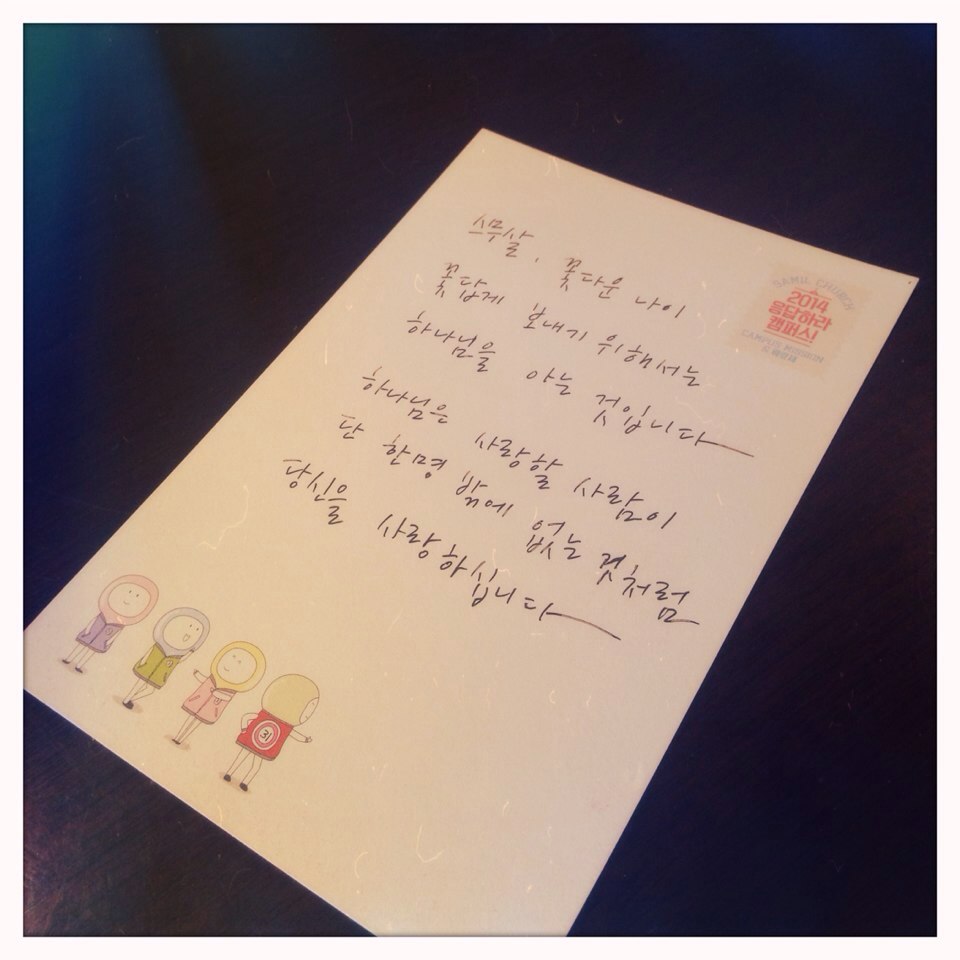 스무살, 꽃다운 나이
꽃답게 보내기 위해서는
하나님을 아는 것입니다
하나님은 사랑할 사람이
단 한명 밖에 없는 것처럼
당신을 사랑하십니다
SAMIL CHURCH
2014
응답하라
캠퍼스!
CAMPUS MISSION
31